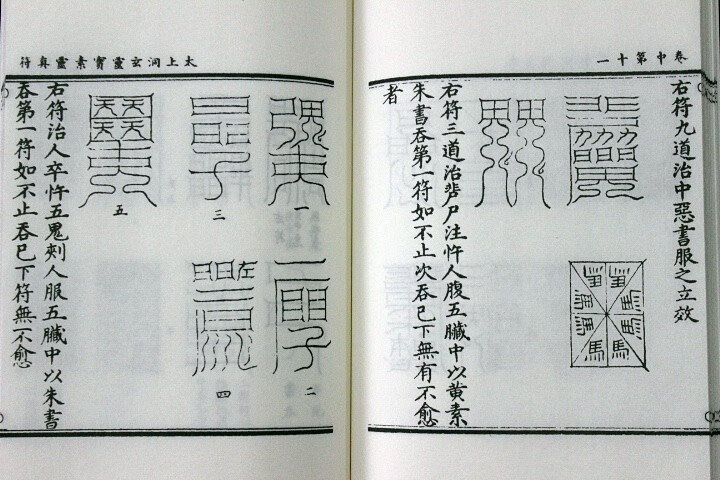 卷中第十一
右符九道治中惡書服之立效
右符三道治𣨼尸注忤人腹五臟中以黄素
朱書吞第一符如不止次吞已下無有不愈
者
太上洞玄靈寳素靈眞符
一
二
三
四
五
右符治人卒忤五鬼刾人服五臟中以朱書
吞第一符如不止吞已下符無不愈